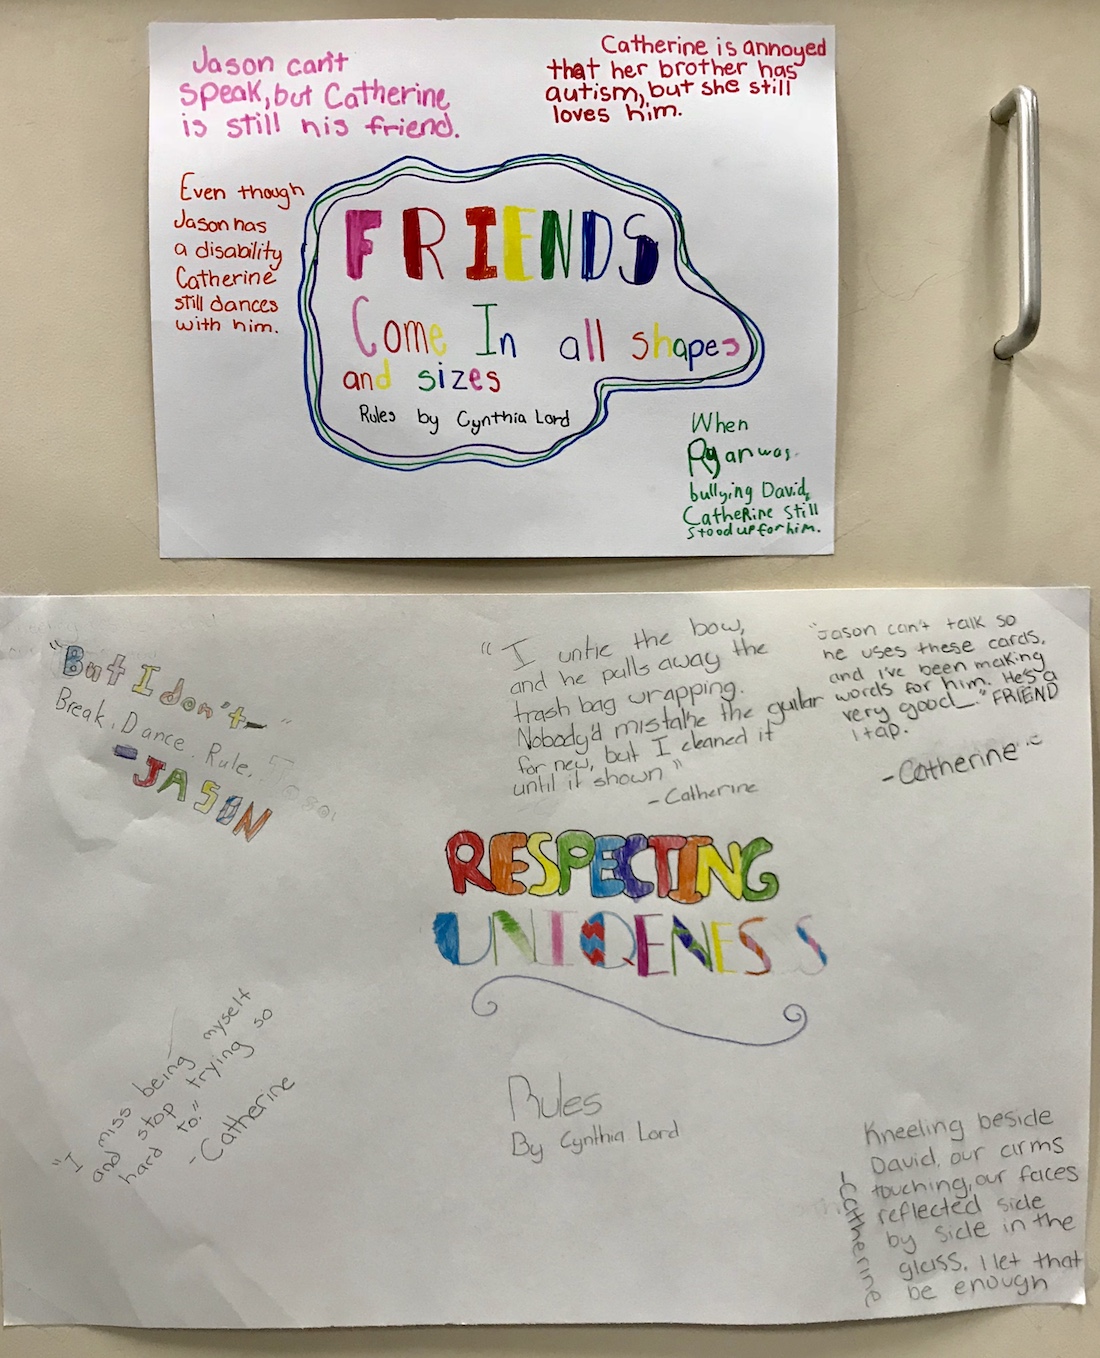 Jason can't
speak, but Catherine
is still his friend.
Catherine is annoyed
that her brother has
autism, but she still
loves him.
Even though
Jason has
a disability
Catherine
still dances
with him.
FRIENDS
Come In all shapes
and sizes
Rules by Cynthia Lord
When
Ryan was
bullying David,
Catherine still
stood up for him.
"But I don't— "
Break. Dance. Rule.
-JASON
"I untie the bow,
and he pulls away the
trash bag wrapping.
Nobody'd mistake the guitar
for new, but I cleaned it
until it shown"
-Catherine
"Jason can't talk so
he uses these cards,
and I've been making
words for him. He's a
very good_." FRIEND
I tap.
-Catherine
RESPECTING
UNIQENESS
Rules
By Cynthia Lord
"I miss being myself
and stop trying so
hard to."
-Catherine
Kneeling beside
David, our arms
touching, our faces
reflected side
by side in the
glass. I let that
be enough
-Catherine